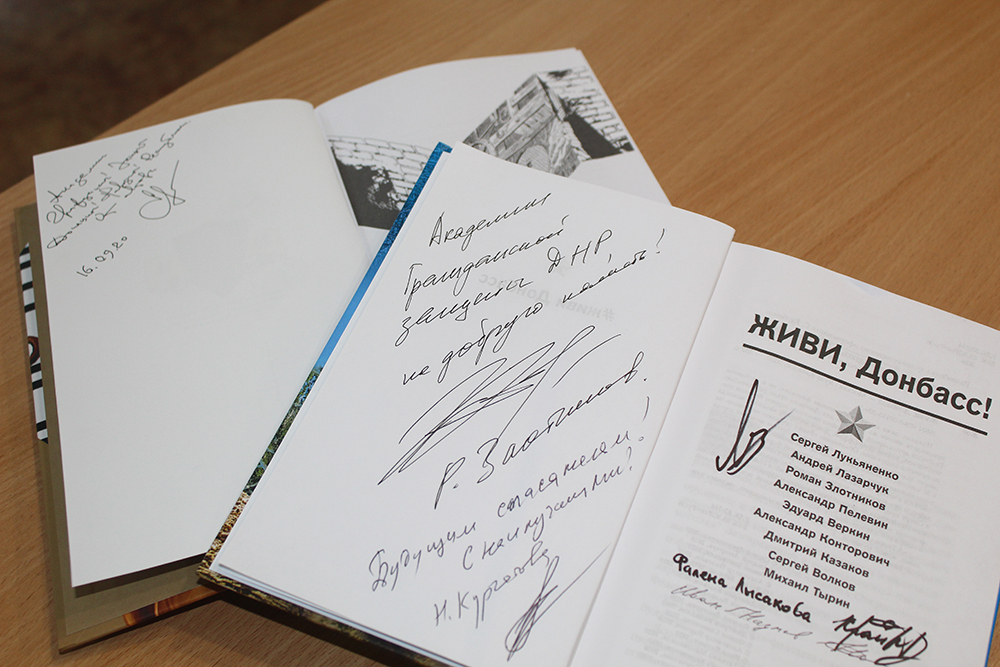 16.09.20
Академии
Гражданской
защиты ДНР,
на добрую память!
Р. Злотников.
Будущим спасателям!
С наилучшими!
Н. Курчатова
#живи Донбасс
ЖИВИ, Донбасс!
Сергей Лукьяненко
Андрей Лазарчук
Роман Злотников
Александр Пелевин
Эдуард Веркин
Александр Конторович
Дмитрий Казаков
Сергей Волков
Михаил Тырин
Фалена Лысакова